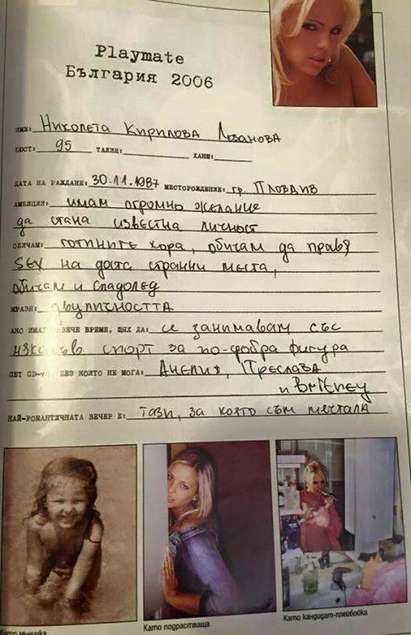 Playmate
България 2006
ИМЕ: Николета Кирилова Лозанова
БЮСТ: 95 ТАЛИЯ: ХАНШ:
ДАТА НА РАЖДАНЕ: 30.11.1987 МЕСТОРОЖДЕНИЕ: гр. Пловдив
АМБИЦИИ: имам огромно желание
да стана известна личност
ОБИЧАМ: готините хора, обичам да правя
SEX на доста странни места,
обичам и сладолед
МРАЗЯ: двуличността
АКО ИМАХ ПОВЕЧЕ ВРЕМЕ, ЩЯХ ДА: се занимавам със
някакъв спорт за по-добра фигура
CD- БЕЗ КОИТО НЕ МОГА: Анелия, Преслава
и Britney
НАЙ-РОМАНТИЧНАТА ВЕЧЕР Е: Тази, за която съм мечтала
Като мъничка
Като подрастваща
Като кандидат-плейбойка